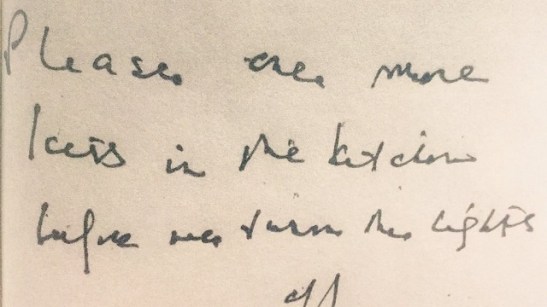 Please one more
kiss in the kitchen
before we turn the lights
off